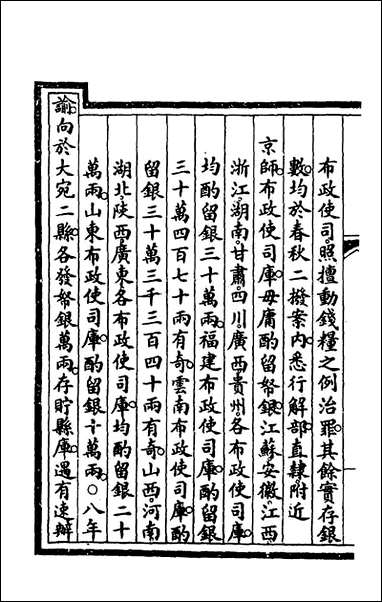 布政使司。照擅動錢糧之例治罪。其餘實存銀
數。均於春秋二撥案內。悉行解部。直隸。附近
京師。布政使司庫。毋庸酌留帑銀。江蘇。安徽。江西
浙江。湖南。甘肅。四川。廣西。貴州。各布政使司庫。
均酌留銀三十萬兩。福建布政使司庫。酌留銀
三十萬四百七十兩有奇。雲南布政使司庫。酌
留銀三十萬三千三百四十兩有奇。山西。河南
湖北。陝西。廣東。各布政使司庫。均酌留銀二十
萬兩。山東布政使司庫。酌留銀十萬兩。○八年
諭。向於大宛二縣。各發帑銀萬兩。存貯縣庫。遇有速辦